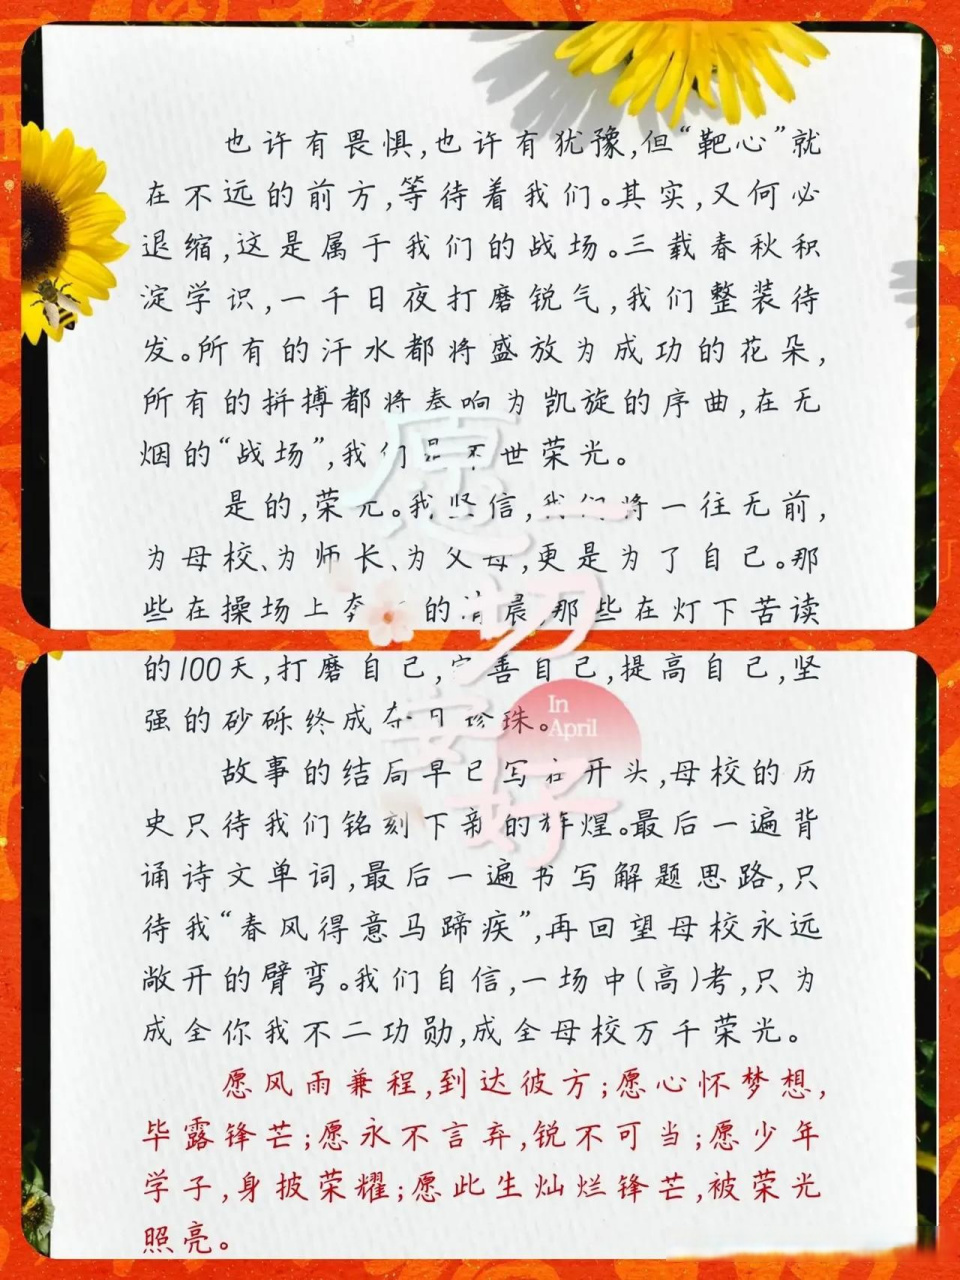 也许有畏惧,也许有犹豫,但“靶心”就
在不远的前方,等待着我们。其实,又何必
退缩,这是属于我们的战场。三载春秋积
淀学识,一千日夜打磨锐气,我们整装待
发。所有的汗水都将盛放为成功的花朵,
所有的拼搏都将奏响为凯旋的序曲,在无
烟的“战场”,我们 不世荣光。
是的,荣光。我坚信,我们将一往无前,
为母校、为师长、为父母,更是为了自己。那
些在操场上奔 的清晨,那些在灯下苦读
的100天,打磨自己,完善自己,提高自己,坚
强的砂砾终成夺目珍珠。
故事的结局早已写在开头,母校的历
史只待我们铭刻下新的辉煌。最后一遍背
诵诗文单词,最后一遍书写解题思路,只
待我“春风得意马蹄疾”,再回望母校永远
敞开的臂弯。我们自信,一场中(高)考,只为
成全你我不二功勋,成全母校万千荣光。
愿风雨兼程,到达彼方;愿心怀梦想,
毕露锋芒;愿永不言弃,锐不可当;愿少年
学子,身披荣耀;愿此生灿烂锋芒,被荣光
照亮。
愿一切安好
In
April